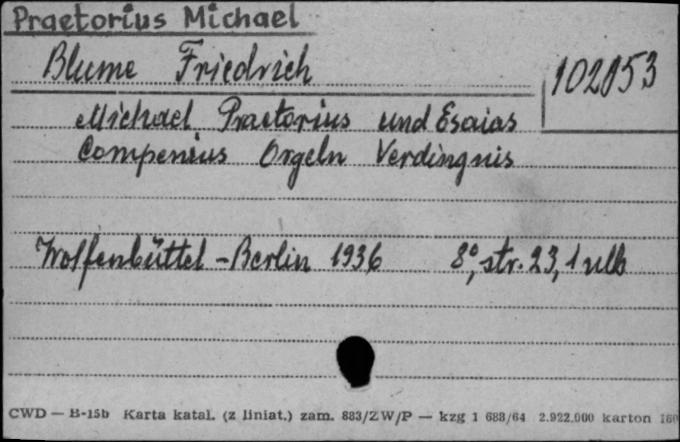 Praetorius Michael
Blume Friedrich
102853
Michael Praetorius und Esaias
Compenius Orgeln Verdingnis
Wolfenbüttel - Berlin 1936 8°, str. 23, 1 nlb
CWD — B-15b Karta katal. (z liniat.) zam. 883/ZW/P — kzg 1 688/64 2.922.000 karton 160